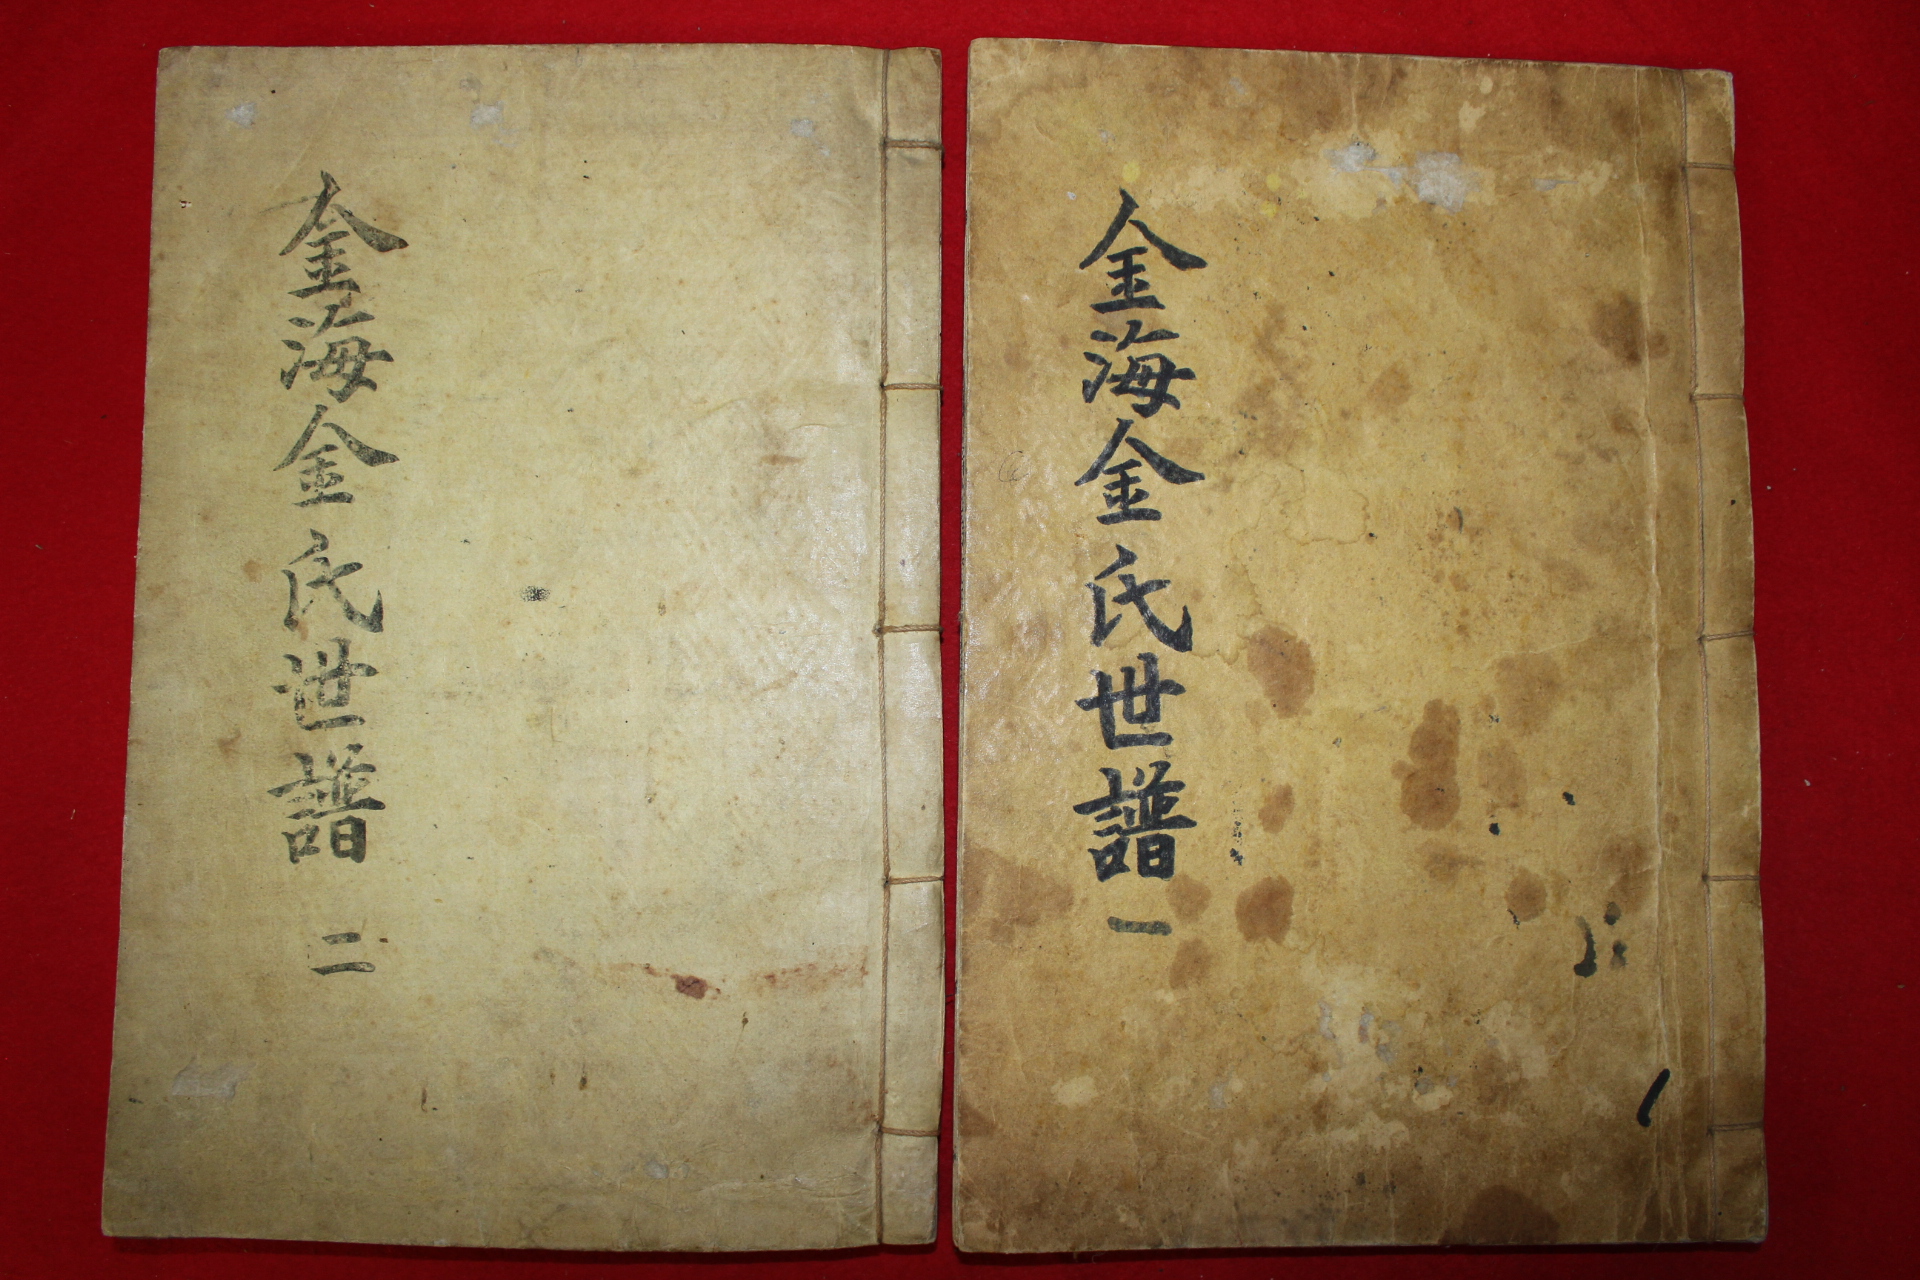 金海金氏世譜 一
金海金氏世譜 二